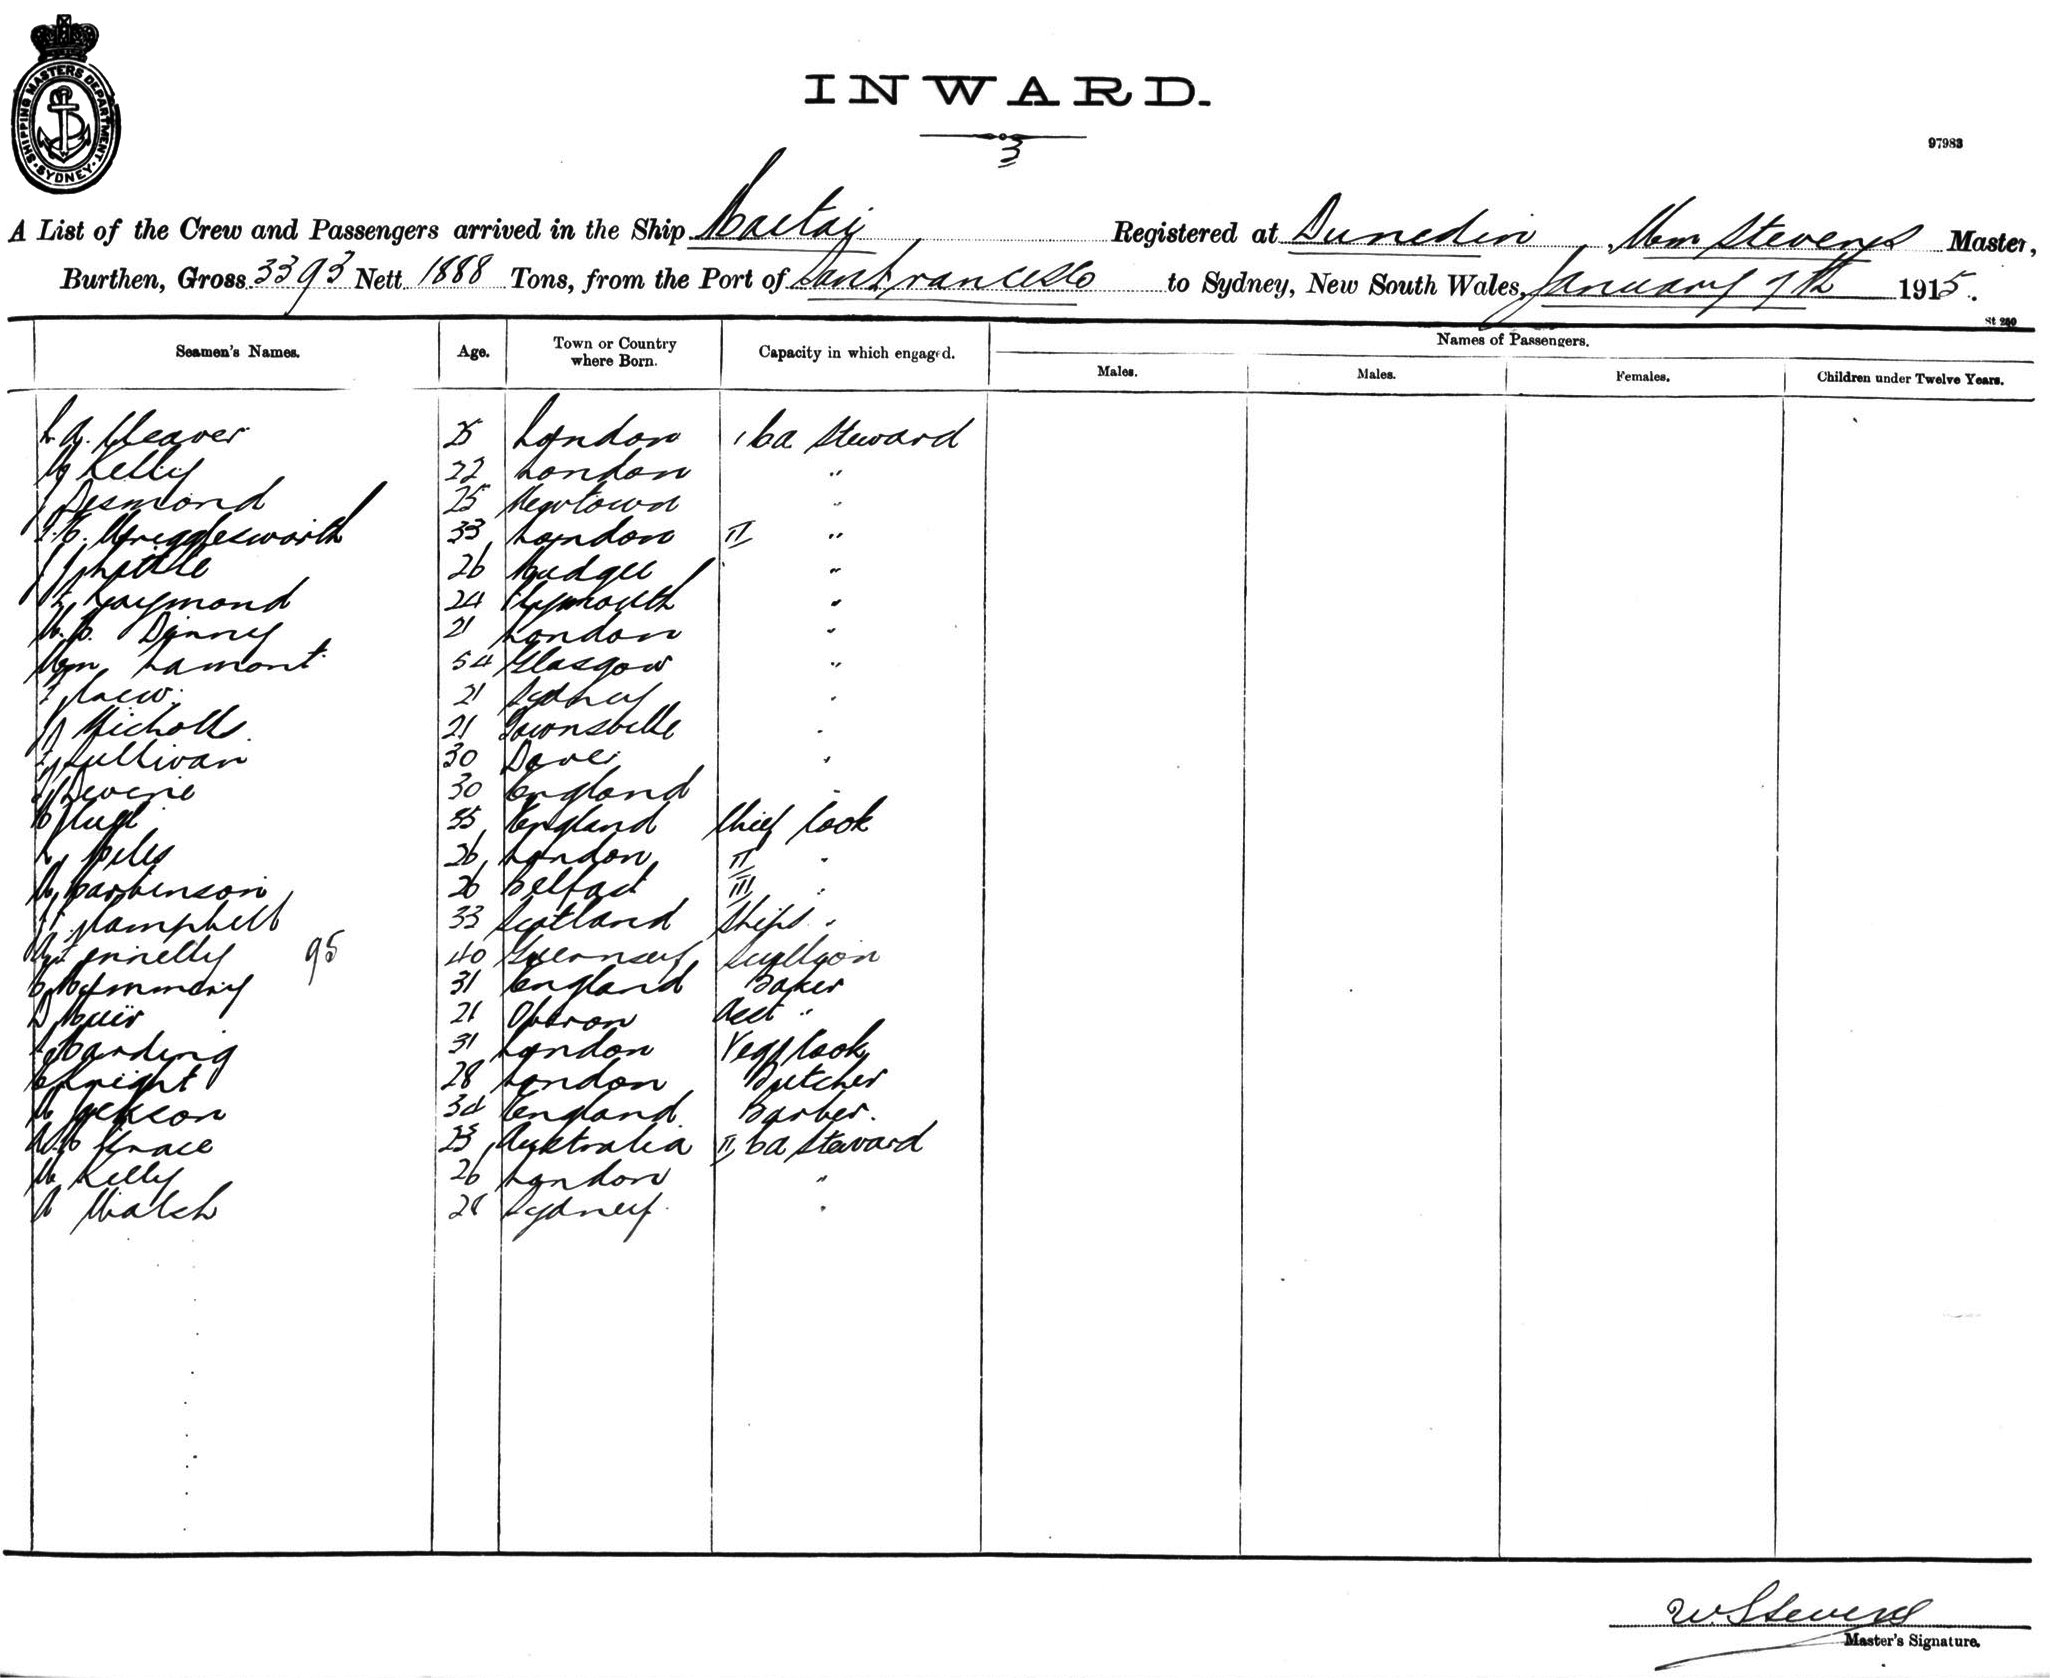 SHIPPING MASTERS DEPARTMENT. SYDNEY.
INWARD.
3
97983
A List of the Crew and Passengers arrived in the Ship Maitai Registered at Dunedin, Wm Stevens Master,
Burthen, Gross 3393 Nett 1888 Tons, from the Port of San Francisco to Sydney, New South Wales, January 7th 1915.
St 280
Seamen's Names. Age. Town or Country where Born. Capacity in which engaged. Names of Passengers.
Males. Males. Females. Children under Twelve Years.
25 London Steward
Kelly 22 London "
J Desmond 25 Newtown "
Wrigglesworth 33 London II "
26 Mudgee "
Raymond 24 Plymouth "
Dinny 21 London "
Wm Lamont 54 Glasgow "
21 Sydney "
Nicholls 21 Townsville "
Sullivan 30 Dover "
Devine 30 England "
35 England Chief Cook
L Miles 26 London II "
26 Belfast III "
Campbell 33 Scotland Ships "
95 40 Guernsey Scullion
31 England Baker
D Muir 21 Oberon Asst "
Harding 31 London Veg Cook
28 London Butcher
34 England Barber.
Grace 23 Australia II Steward
Kelly 26 London "
Walsh 28 Sydney "
W. Stevens
Master's Signature.